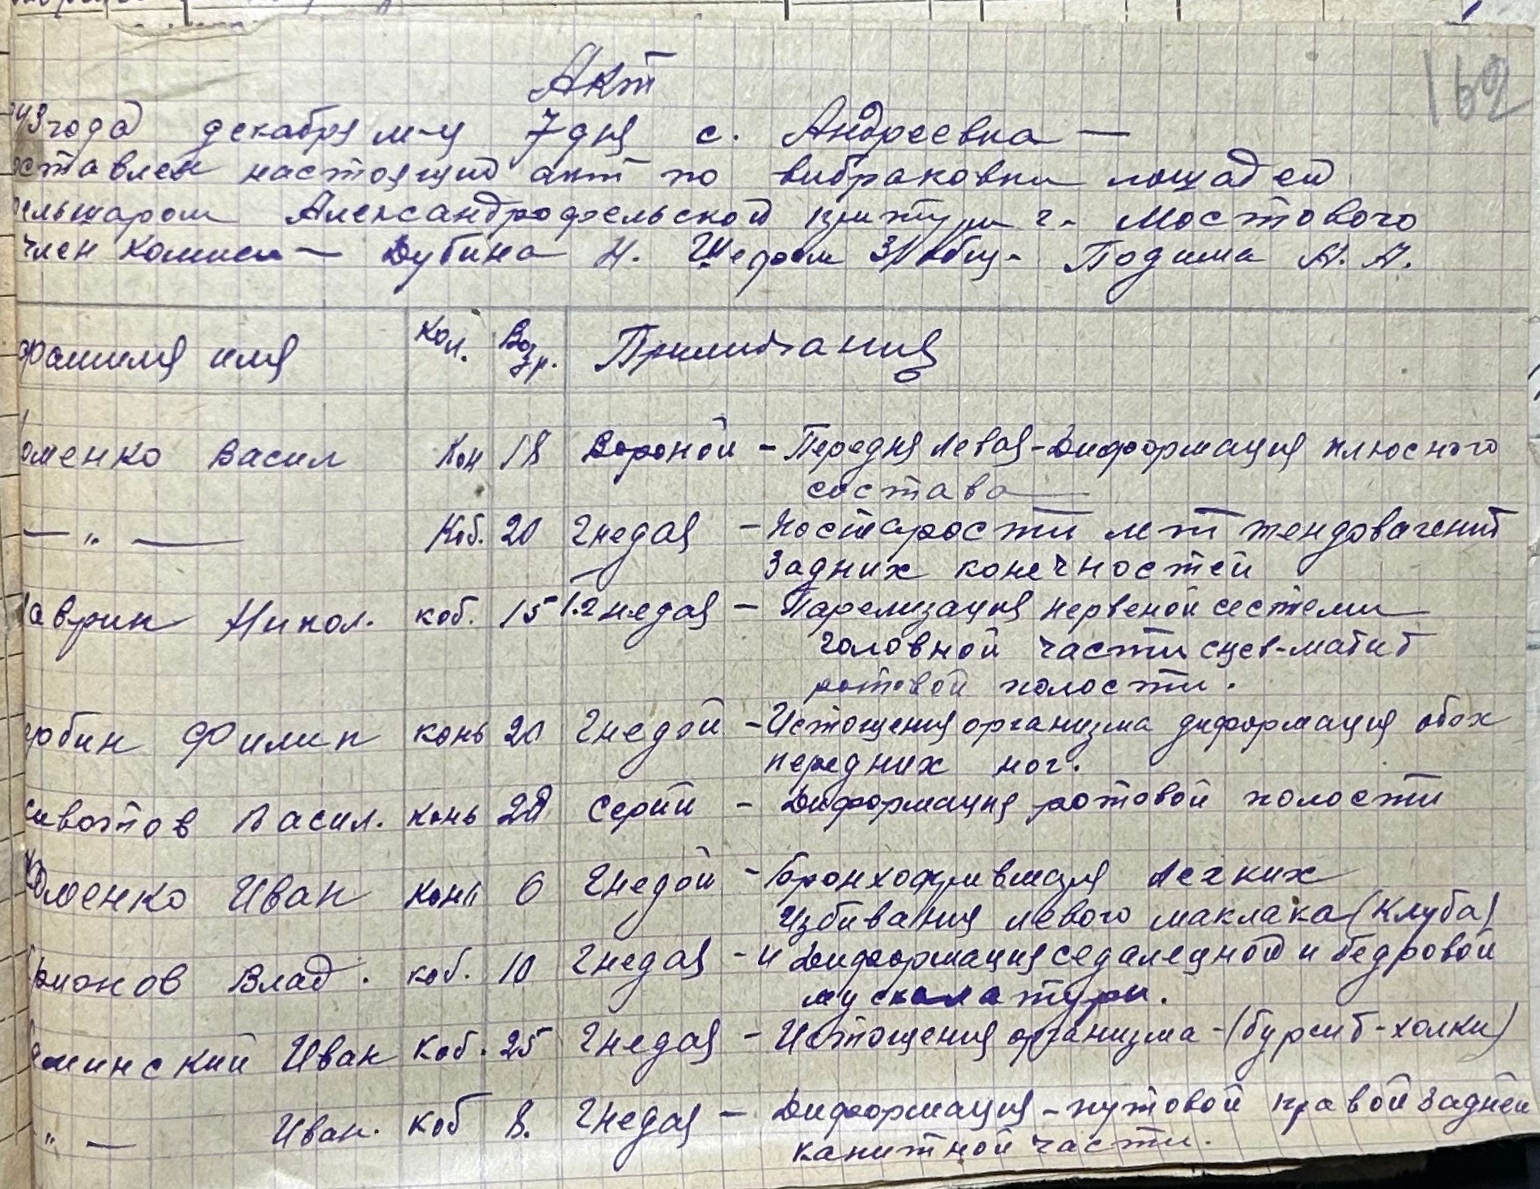 162
Акт
43 года декабря м-ц 7 дня с. Андреевка —
ставлен настоящий акт по вибраковки лошадей
ельшаром Александрофельской г. Мостового
член комиси — Дубина Н. Шефом Подима А. А.
фамимя имя Кол. Возр. Примичания
оменко Васил Кон 18 Вороной - Передня левая - Диформация плюсного
состава
— " — Коб. 20 Гнедая - По старости лет тендовагенит
Задних конечностей
аврик Никол. коб. 15 Гнедая - Парелизация нервеной сестеми
головной части
ротовой полости.
рбин Филип конь 20 Гнедой - Истощения организма диформация обох
передних ног.
Васил. конь Серий - Диформация ротовой полости
оменко Иван конь 6 Гнедой - легких
Избивания левого маклака (Клуба)
Влад. коб. 10 Гнедая - и Диформация седаледной и бедровой
мускалатури.
минский Иван Коб. 25 Гнедая - Истощения организма - (бурсит - холки)
" — Иван. коб 8. Гнедая - Диформация - путовой правой задней
капитной части.